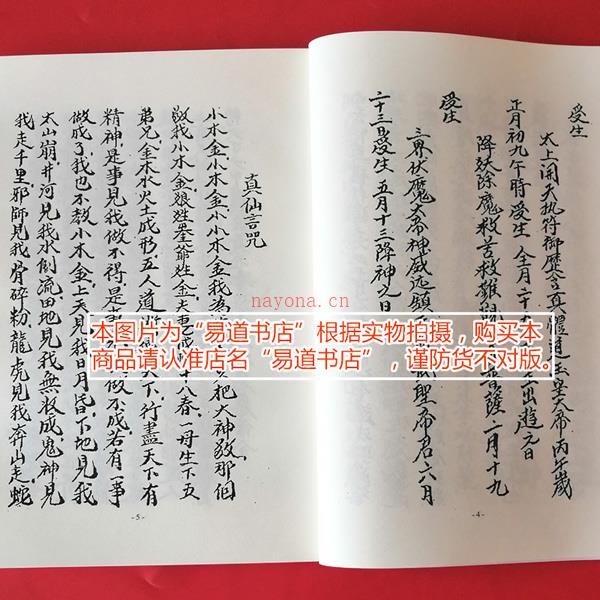 受生
太上開天执符御歷含真體道玉皇大帝丙午歲
正月初九午時受生 全月二十五
出遊之日
降妖除魔救苦救難
菩薩二月十九
受生
三界伏魔大帝神威远鎮
聖帝君六月
二十三日受生 五月十三降神之日
-4-
真仙言咒
小木金小木金小小木金我為
把大神敬那個
敬我小木金娘姓姜爺姓金夫妻
十八春一母生下五
弟兄金木水火土成形五人道
天下行盡天下有
精神是事見我做不得是事
做不成若有一事
做成了我也不教小木金上天見我日月昏下地見我
太山崩井河見我水倒流田地見我無收成鬼神見
我走千里邪師見我骨碎粉龍虎見我奔山走蛇
-5-
nayona.cn
本图片为“易道书店”根据实物拍摄，购买本
商品请认准店名“易道书店”，谨防货不对版。